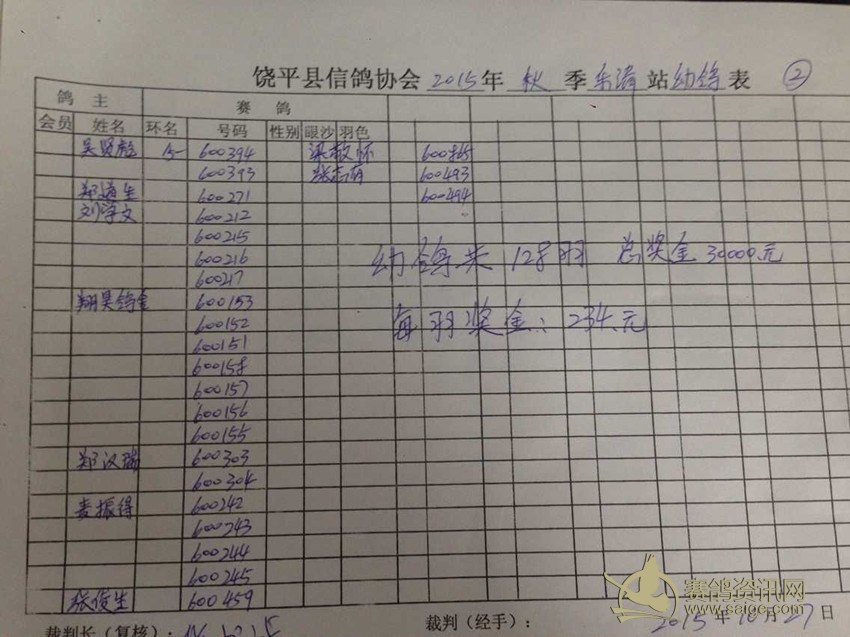 饶平县信鸽协会 2015 年 秋 季 站 幼鸽 表 ②
鸽 主 赛 鸽
会员 姓名 环名 号码 性别 眼沙 羽色
吴贤彪 15- 600394 梁敬怀
600393 张志南 600493
郑道生 600271 600494
刘学文 600212
600215
600216
幼鸽共 128羽 总奖金 30000元
600217
翔昊鸽舍 600153
600152 每羽奖金: 234元
600151
600158
600157
600156
600155
郑汉瑞 600303
600304
麦振得 600242
600243
600244
600245
张俊生 600459
裁判长(复核): 裁判(经手): 2015 年 10 月 27 日
赛鸽资讯网
www.saige.com